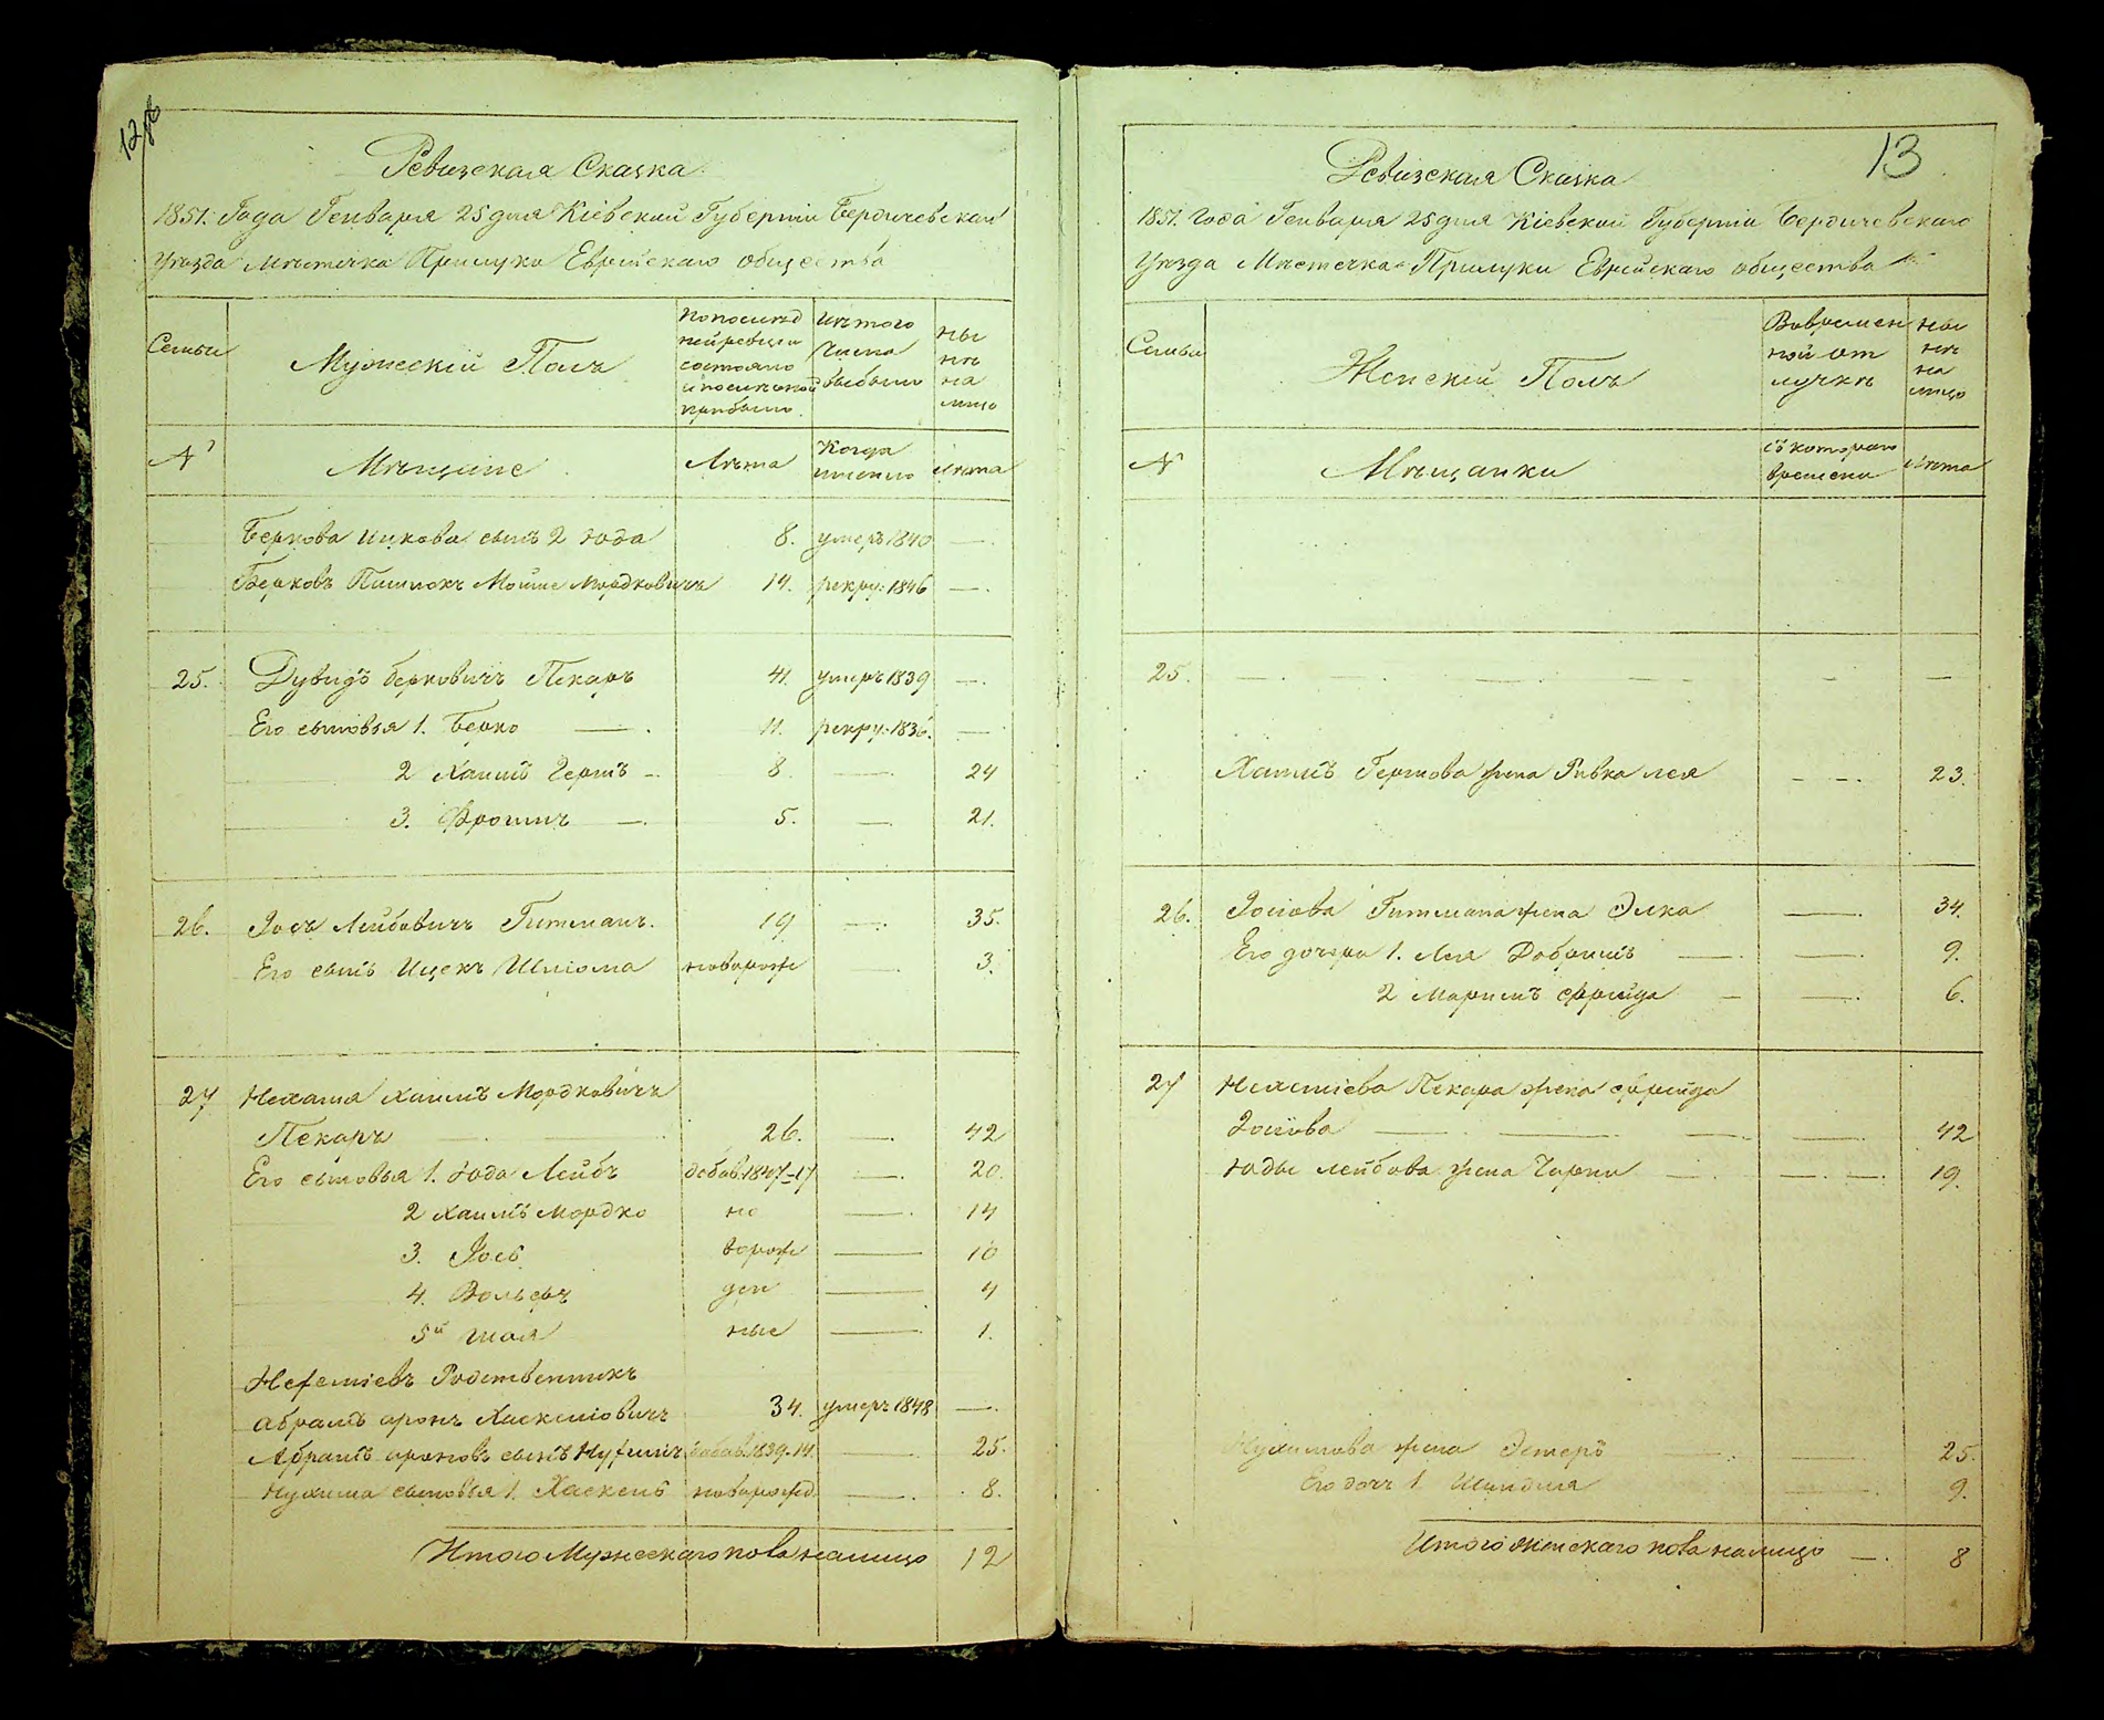 Ревизская Сказка
1851. Года Генваря 25 дня Кіевской Губерніи Бердичевскаго
уѣзда Мѣстечка Прилуки Еврейскаго общества
Семьи
Мужескій Полъ
По послѣд
ней ревизіи
состояло
и послѣ оной
прибыло
Изъ того
числа
выбыло
ны
нѣ
на
лицо
№
Мѣщане
Лѣта
Когда
именно
Лѣта
Беркова сынъ 2 Юда 8. умеръ 1840 —.
Берковъ Мойше Мордковичъ 14. рекру: 1846 —.
25. Дувидъ Берковичъ Пекаръ 41. умеръ 1839 —.
Его сыновья 1. Берко —. 11. рекру: 1836. —
2 Хаимъ Гершъ —. 8. —. 24
3. Фроимъ —. 5. —. 21.
26. Іось Лейбовичъ Гитманъ. 19 —. 35.
Его сынъ Ицекъ Шліома новорож —. 3.
27 Нехемія Хаимъ Мордковичъ
Пекаръ —. 26. —. 42
Его сыновья 1. Юда Лейбъ добав. 1847-17 —. 20.
2 Хаимъ Мордко но —. 14
3. Іось ворож — 10
4. Вольфъ ден — 4
5й Шая ные —. 1.
Нехеміевъ Родственникъ
Абрамъ Аронъ Хаскеліовичъ 34. умеръ 1848 —.
Абрамъ Аронова сынъ Нухимъ добав. 1839. 14. — 25.
Нухима сыновья 1. Хаскель новорожд. —. 8.
Итого Мужескаго пола налицо 12
13
Ревизская Сказка
1851. Года Генваря 25 дня Кіевской Губерніи Бердичевскаго
уѣзда Мѣстечка Прилуки Еврейскаго общества
Семьи
Женскій Полъ
Во времен
ной от
лучкѣ
ны
нѣ
на
лицо
№
Мѣщанки
Съ котораго
времени
Лѣта
25. — — — — —
Хаимъ Гершова жена Ривка Лея — —. 23.
26. Іосіова Гитмана жена Элка —. 34.
Его дочери 1. Лея Добришъ —. —. 9.
2 Маримъ Фрейда — —. 6.
27 Нехеміева Пекара жена Фрейда
Іосіова —. —. —. —. 42
Юды Лейбова жена Чарна —. —. —. 19.
Нухимова жена Эстеръ —. — 25.
Его дочь 1. Шиндля —. 9.
Итого женскаго пола налицо —. 8